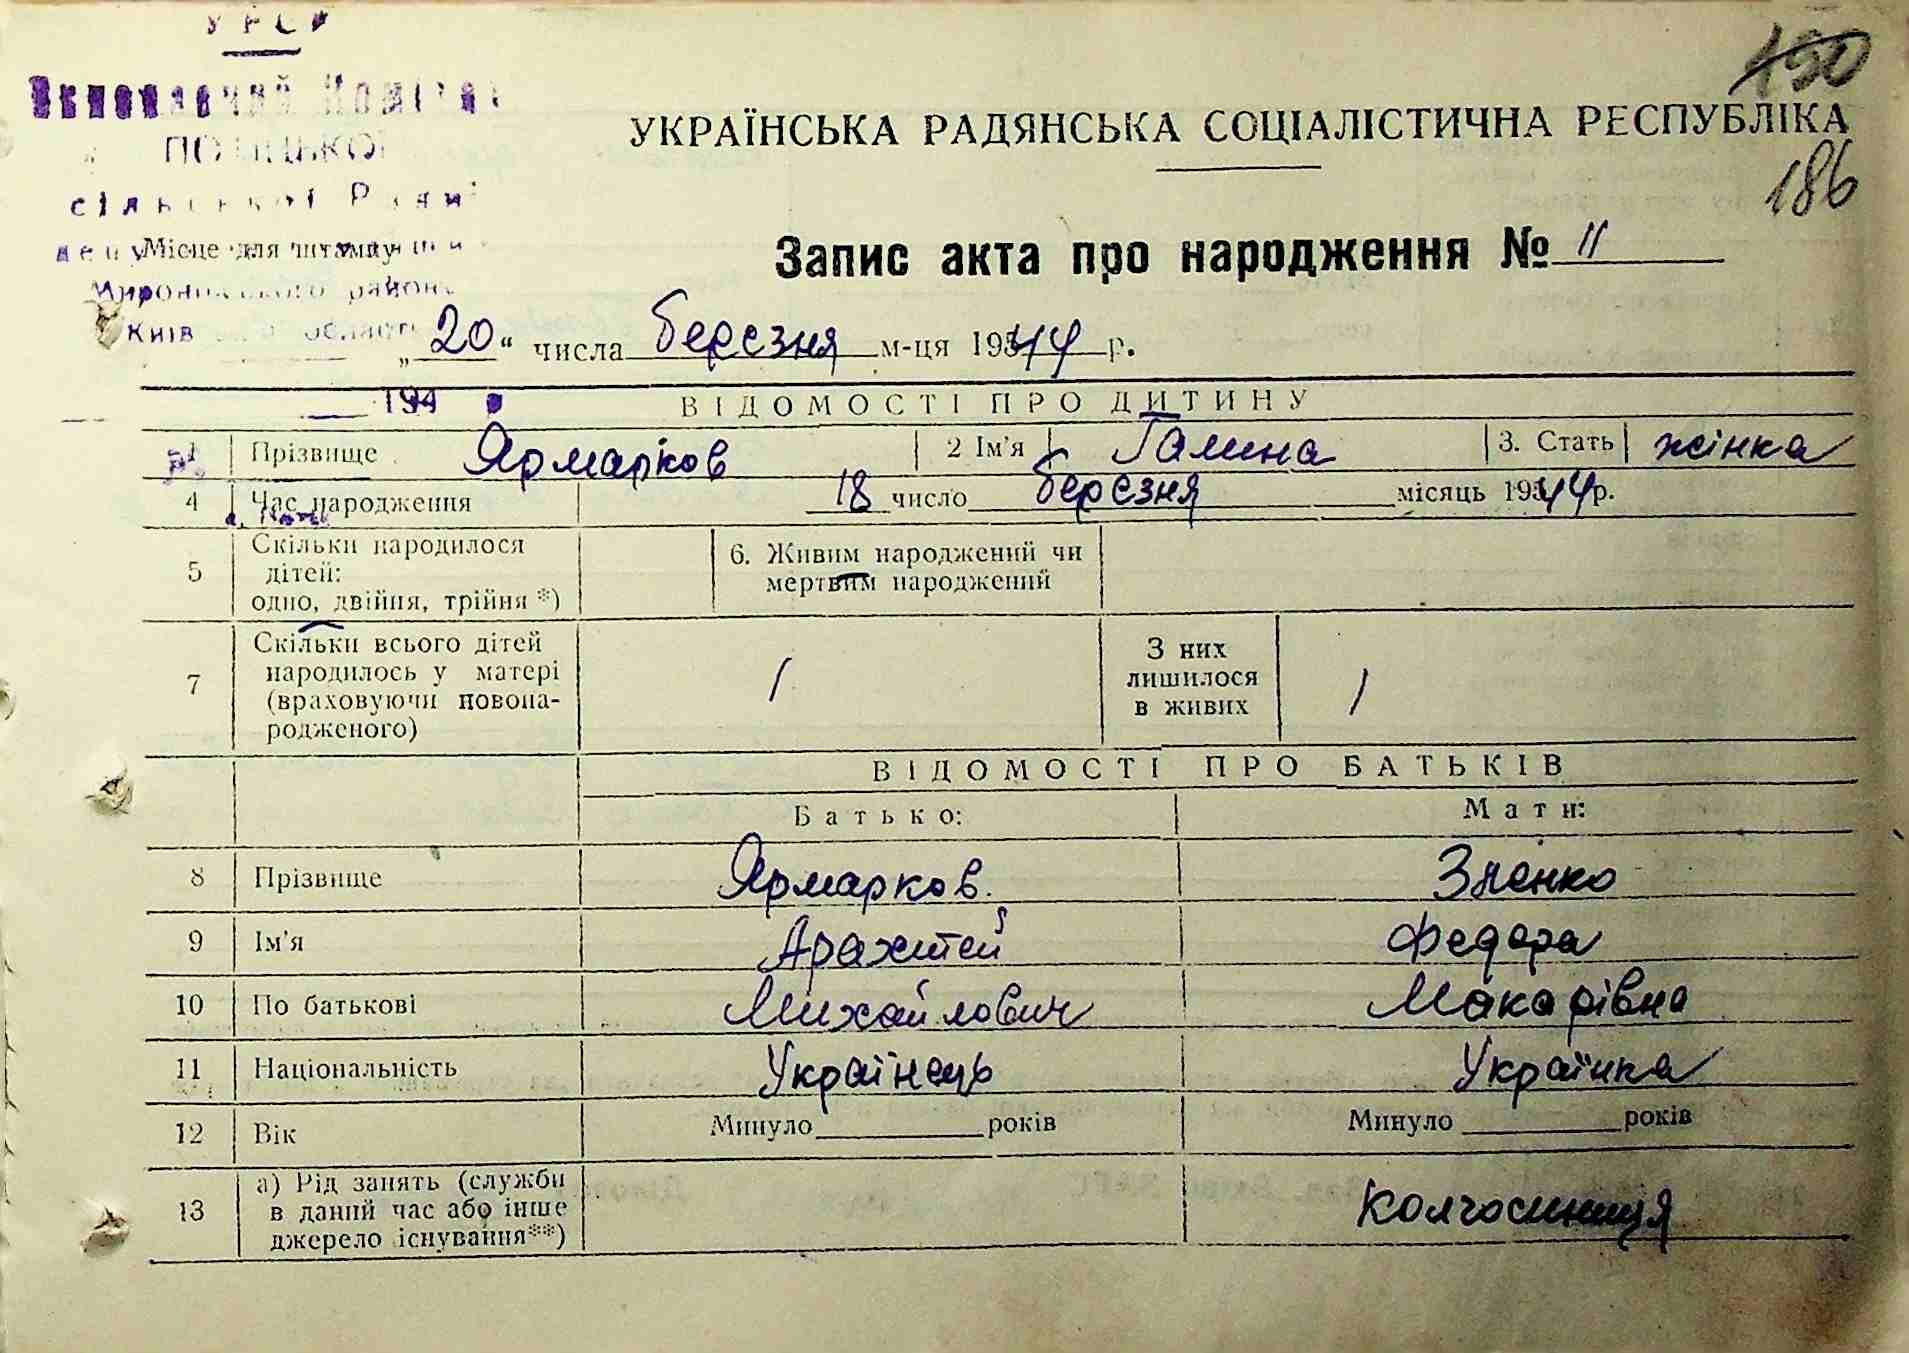 УРСР
Виконавчий Комітет
сільської Ради
Місце для штампу
Миронівського району
Київ області
194
150
УКРАЇНСЬКА РАДЯНСЬКА СОЦІАЛІСТИЧНА РЕСПУБЛІКА
186
Запис акта про народження № 11
„20“ числа березня м-ця 1944 р.
ВІДОМОСТІ ПРО ДИТИНУ
1 Прізвище Ярмарков 2 Ім’я Галина 3. Стать жінка
4 Час народження 18 число березня місяць 1944 р.
5 Скільки народилося дітей: одно, двійня, трійня *) 6. Живим народжений чи мертвим народжений
7 Скільки всього дітей народилось у матері (враховуючи новонародженого) 1 З них лишилося в живих 1
ВІДОМОСТІ ПРО БАТЬКІВ
Батько: Мати:
8 Прізвище Ярмарков. Зленко
9 Ім’я Федора
10 По батькові Михайлович Макарівна
11 Національність Українець Українка
12 Вік Минуло років Минуло років
13 а) Рід занять (служби в даний час або інше джерело існування**) Колгоспниця